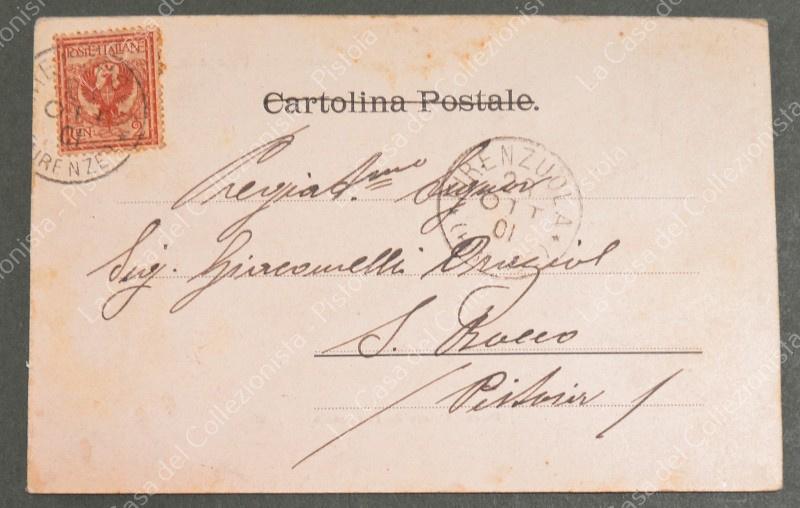 POSTE ITALIANE
CEN. 2
FIRENZE
OTT
01
Cartolina Postale.
FIRENZUOLA
OTT
01
Pregiat.mo Signor
Sig. Giacomelli
S. Rocco
/ Pistoia /
La Casa del Collezionista - Pistoia